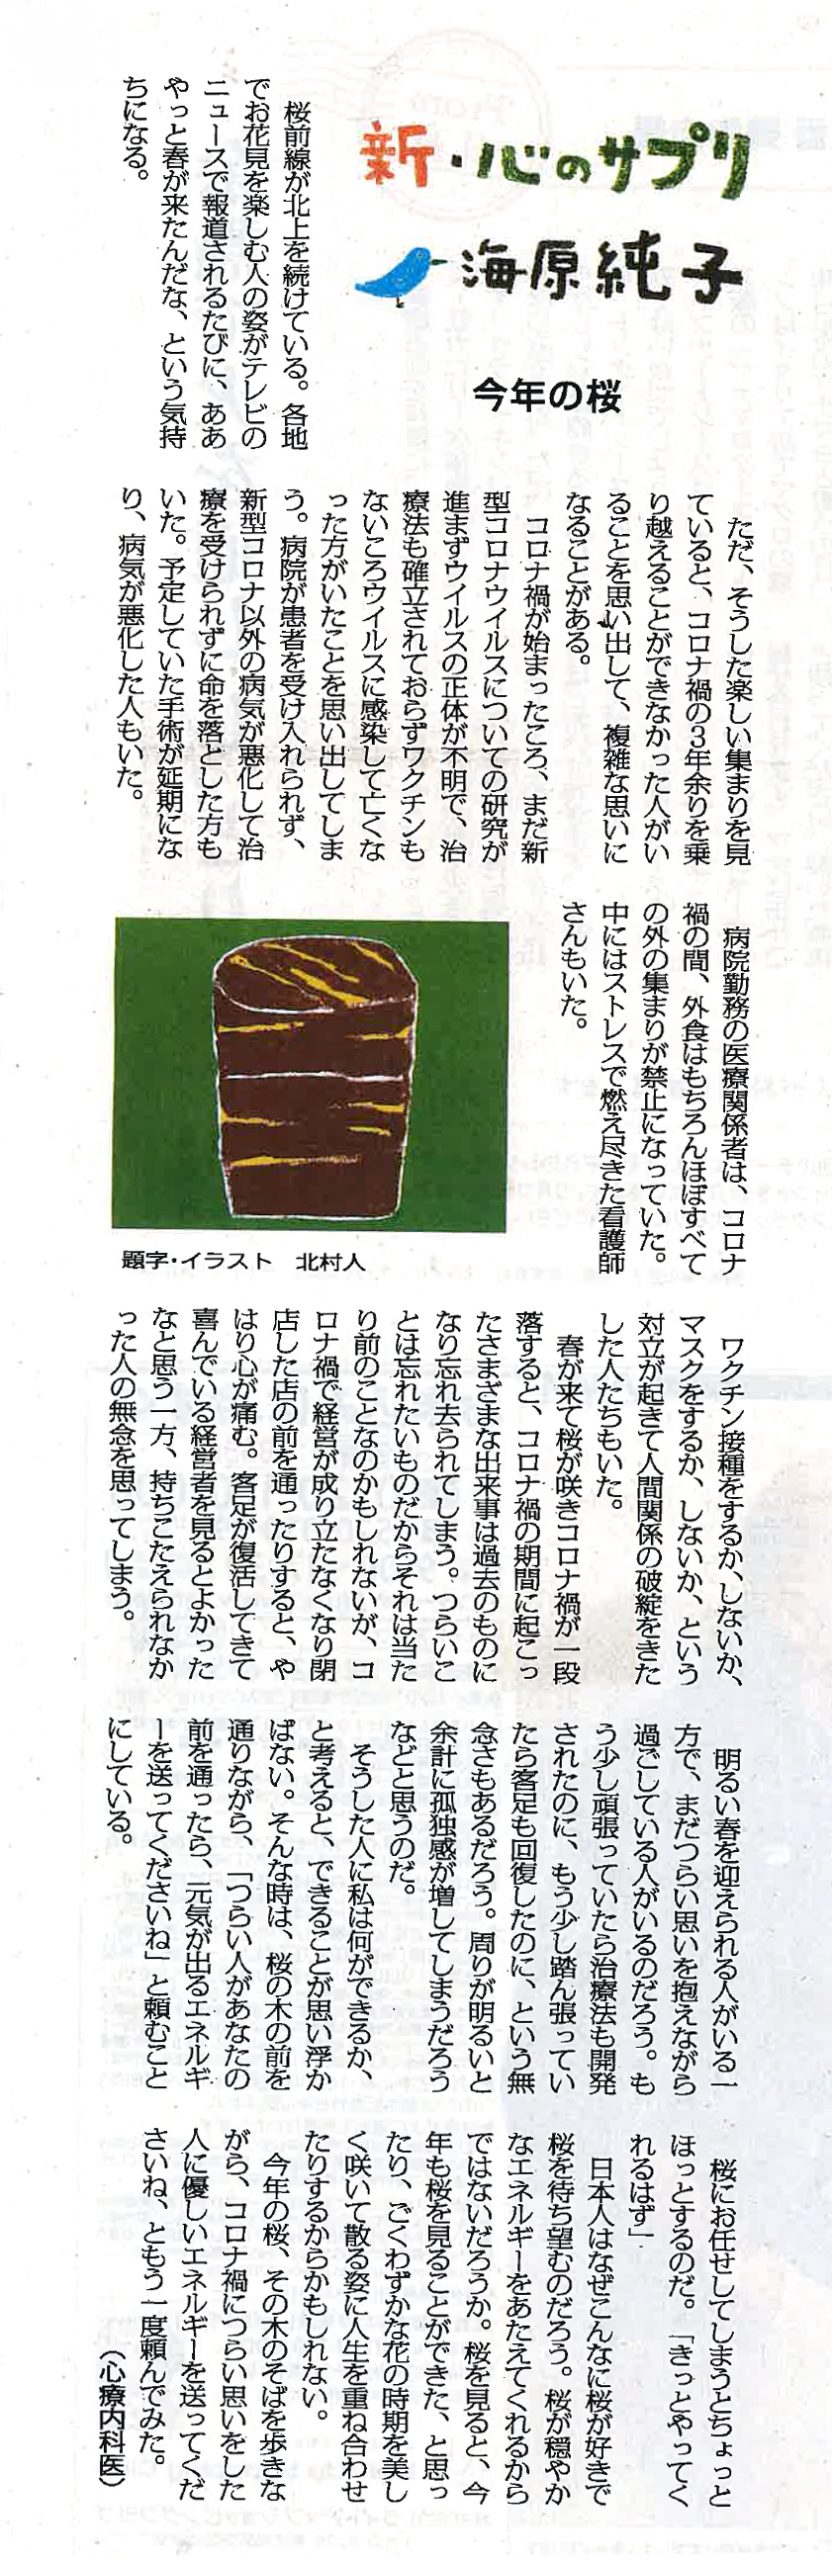 新・心のサプリ
海原純子
今年の桜
桜前線が北上を続けている。各地
でお花見を楽しむ人の姿がテレビの
ニュースで報道されるたびに、ああ
やっと春が来たんだな、という気持
ちになる。
ただ、そうした楽しい集まりを見
ていると、コロナ禍の3年余りを乗
り越えることができなかった人がい
ることを思い出して、複雑な思いに
なることがある。
コロナ禍が始まったころ、まだ新
型コロナウイルスについての研究が
進まずウイルスの正体が不明で、治
療法も確立されておらずワクチンも
ないころウイルスに感染して亡くな
った方がいたことを思い出してしま
う。病院が患者を受け入れられず、
新型コロナ以外の病気が悪化して治
療を受けられずに命を落とした方も
いた。予定していた手術が延期にな
り、病気が悪化した人もいた。
病院勤務の医療関係者は、コロナ
禍の間、外食はもちろんほぼすべて
の外の集まりが禁止になっていた。
中にはストレスで燃え尽きた看護師
さんもいた。
題字・イラスト　北村人
ワクチン接種をするか、しないか、
マスクをするか、しないか、という
対立が起きて人間関係の破綻をきた
した人たちもいた。
春が来て桜が咲きコロナ禍が一段
落すると、コロナ禍の期間に起こっ
たさまざまな出来事は過去のものに
なり忘れ去られてしまう。つらいこ
とは忘れたいものだからそれは当た
り前のことなのかもしれないが、コ
ロナ禍で経営が成り立たなくなり閉
店した店の前を通ったりすると、や
はり心が痛む。客足が復活してきて
喜んでいる経営者を見るとよかった
なと思う一方、持ちこたえられなか
った人の無念を思ってしまう。
明るい春を迎えられる人がいる一
方で、まだつらい思いを抱えながら
過ごしている人がいるのだろう。も
う少し頑張っていたら治療法も開発
されたのに、もう少し踏ん張ってい
たら客足も回復したのに、という無
念さもあるだろう。周りが明るいと
余計に孤独感が増してしまうだろう
などと思うのだ。
そうした人に私は何ができるか、
と考えると、できることが思い浮か
ばない。そんな時は、桜の木の前を
通りながら、「つらい人があなたの
前を通ったら、元気が出るエネルギ
ーを送ってくださいね」と頼むこと
にしている。
桜にお任せしてしまうとちょっと
ほっとするのだ。「きっとやってく
れるはず」
日本人はなぜこんなに桜が好きで
桜を待ち望むのだろう。桜が穏やか
なエネルギーをあたえてくれるから
ではないだろうか。桜を見ると、今
年も桜を見ることができた、と思っ
たり、ごくわずかな花の時期を美し
く咲いて散る姿に人生を重ね合わせ
たりするからかもしれない。
今年の桜、その木のそばを歩きな
がら、コロナ禍につらい思いをした
人に優しいエネルギーを送ってくだ
さいね、ともう一度頼んでみた。
（心療内科医）